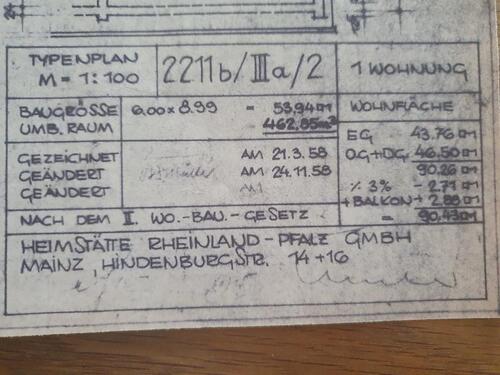 TYPENPLAN
M = 1:100
2211b/IIIa/2
1 WOHNUNG
BAUGRÖSSE 6.00 x 8.99 = 53,94 m
UMB. RAUM 462,85 m³
GEZEICHNET AM 21.3.58
GEÄNDERT AM 24.11.58
GEÄNDERT
NACH DEM II. WO.-BAU.-GESETZ
WOHNFLÄCHE
EG 43,76 m
OG+DG 46,50 m
90,26 m
% 3% - 2,71 m
+BALKON + 2,88 m
= 90,43 m
HEIMSTÄTTE RHEINLAND-PFALZ GMBH
MAINZ, HINDENBURGSTR. 14+16